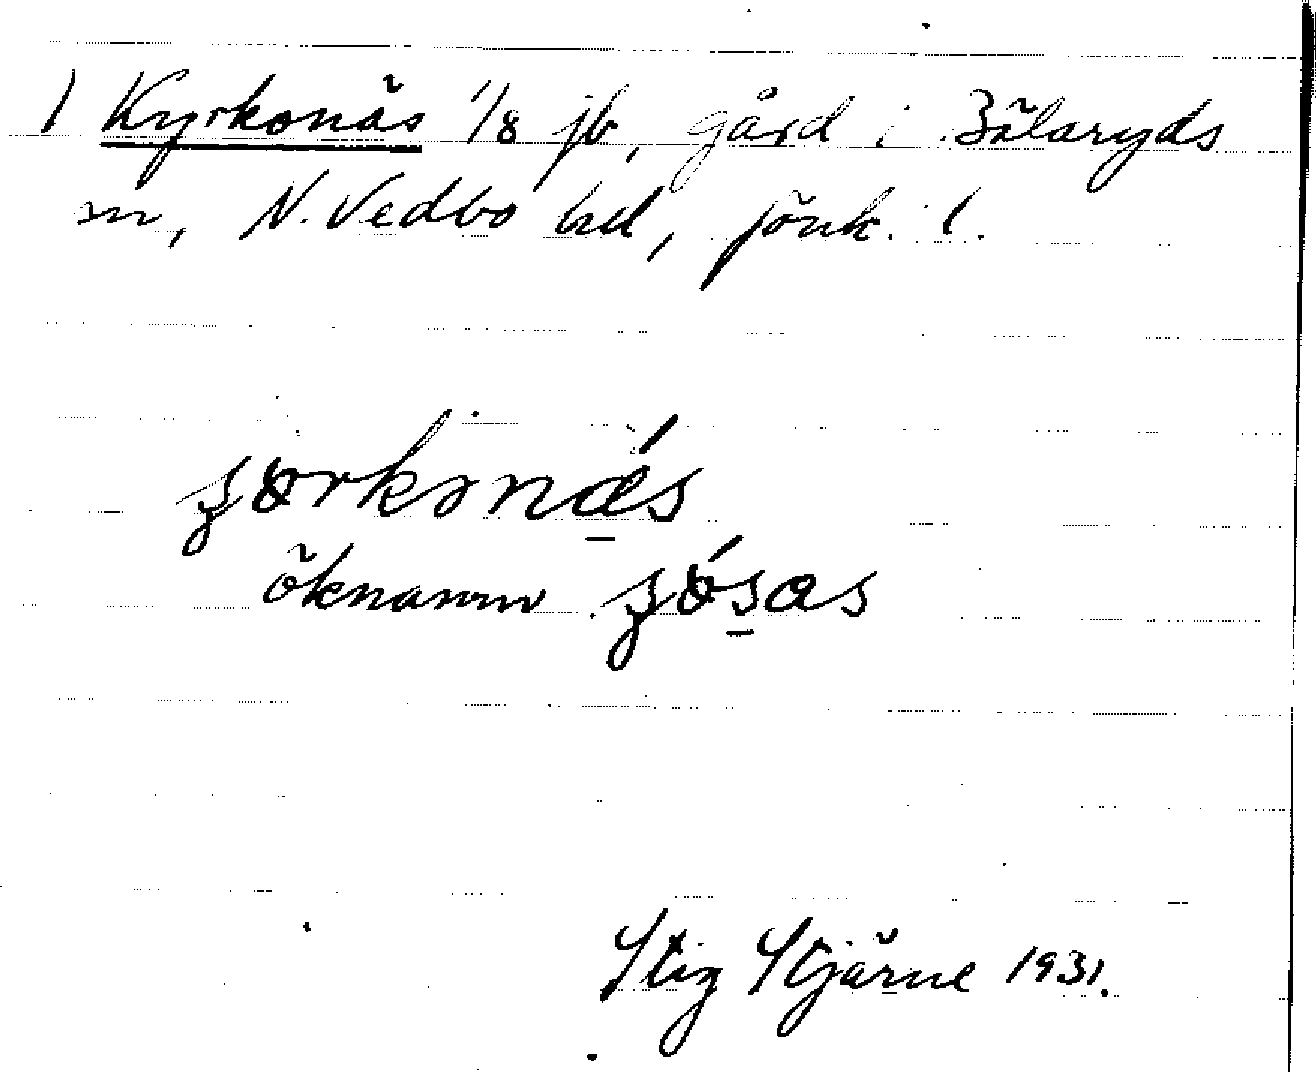 1 Kyrkonäs 1/8 jb, gård i Bälaryds
sn, N. Vedbo hd, Jönk. l.
öknamn
Stig Stjärne 1931.